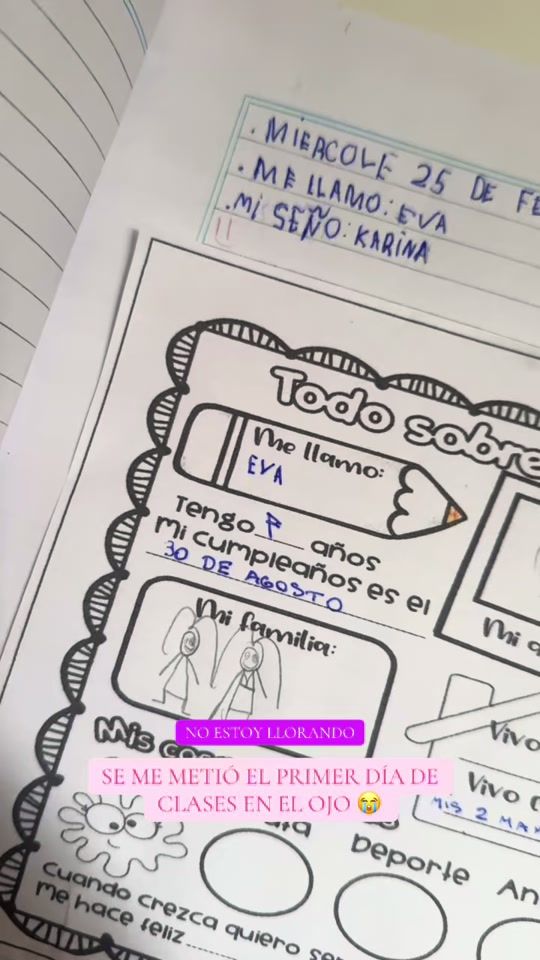 . MIERCOLE 25 DE FE
. ME LLAMO: EVA
. Mi SEÑO: KARINA
Todo sobre
Me llamo:
EVA
Tengo 7 años
Mi cumpleaños es el
30 DE AGOSTO
Mi familia:
Mi
Vivo
Vivo
MIS 2 MA
Mis
NO ESTOY LLORANDO
SE ME METIÓ EL PRIMER DÍA DE
CLASES EN EL OJO 😭
Deporte
An
Cuando crezca quiero se
me hace feliz